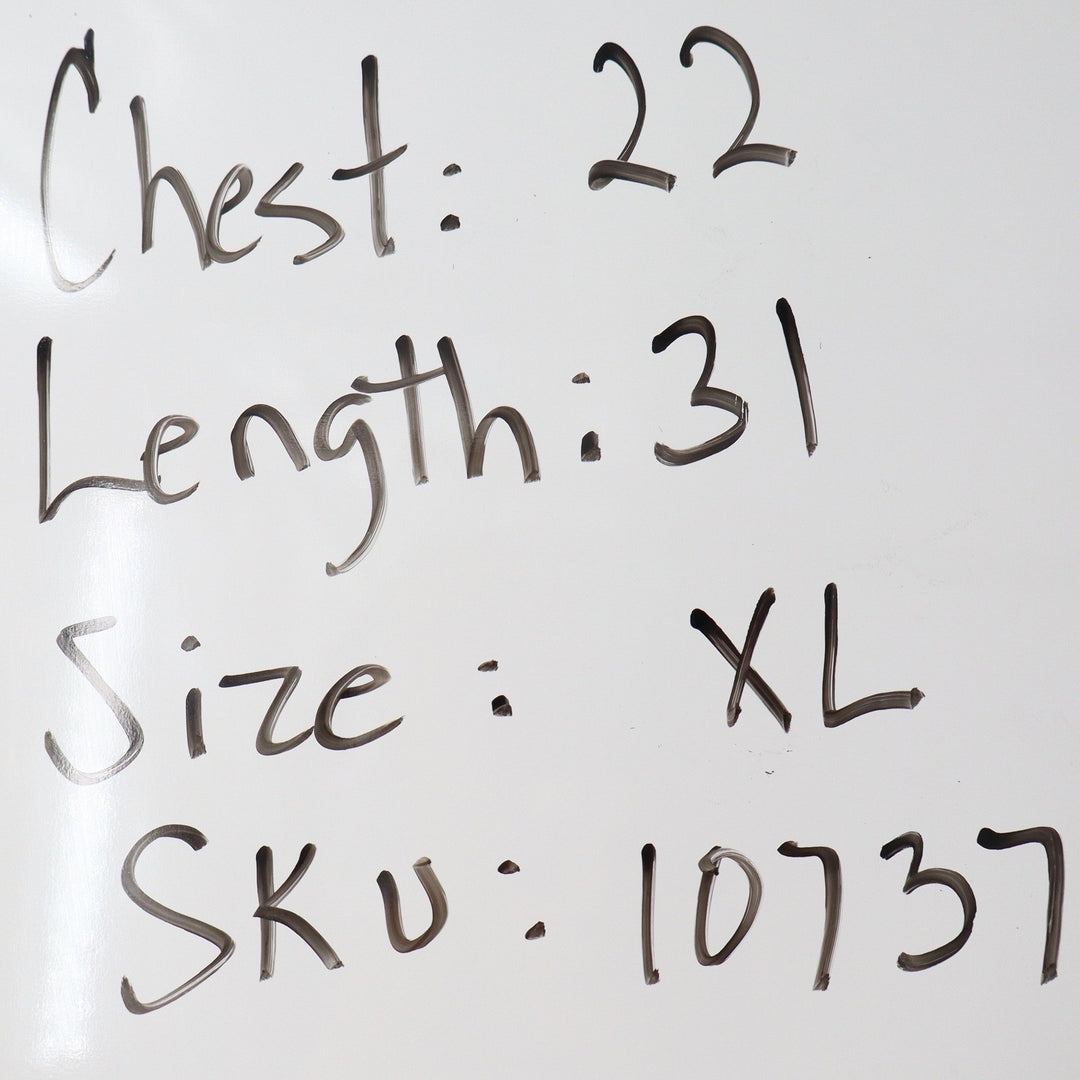 Chest: 22
Length: 31
Size: XL
SKU: 10737